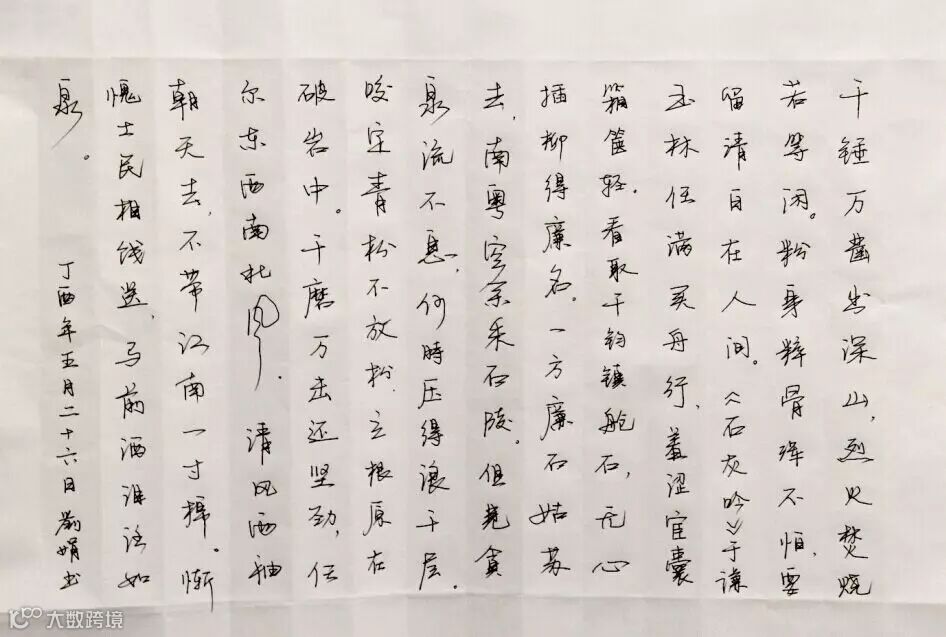 千锤万凿出深山,烈火焚烧
若等闲。粉身粹骨浑不怕,要
留清白在人间。《石灰吟》于谦
玉林任满买舟行,羞涩宦囊
箱箧轻.看取千钧镇舱石,无心
插柳得廉名。一方廉石姑苏
去,南粤空余采石陵。但贪
泉流不息,何時压得浪千层.
咬定青松不放松.立根原在
破岩中。千磨万击还坚劲,任
尔东西南北风.清风两袖
朝天去,不带江南一寸棉。惭
愧士民相饯送,马前洒泪注如
泉。
丁酉年五月二十六日娟书
大数跨境